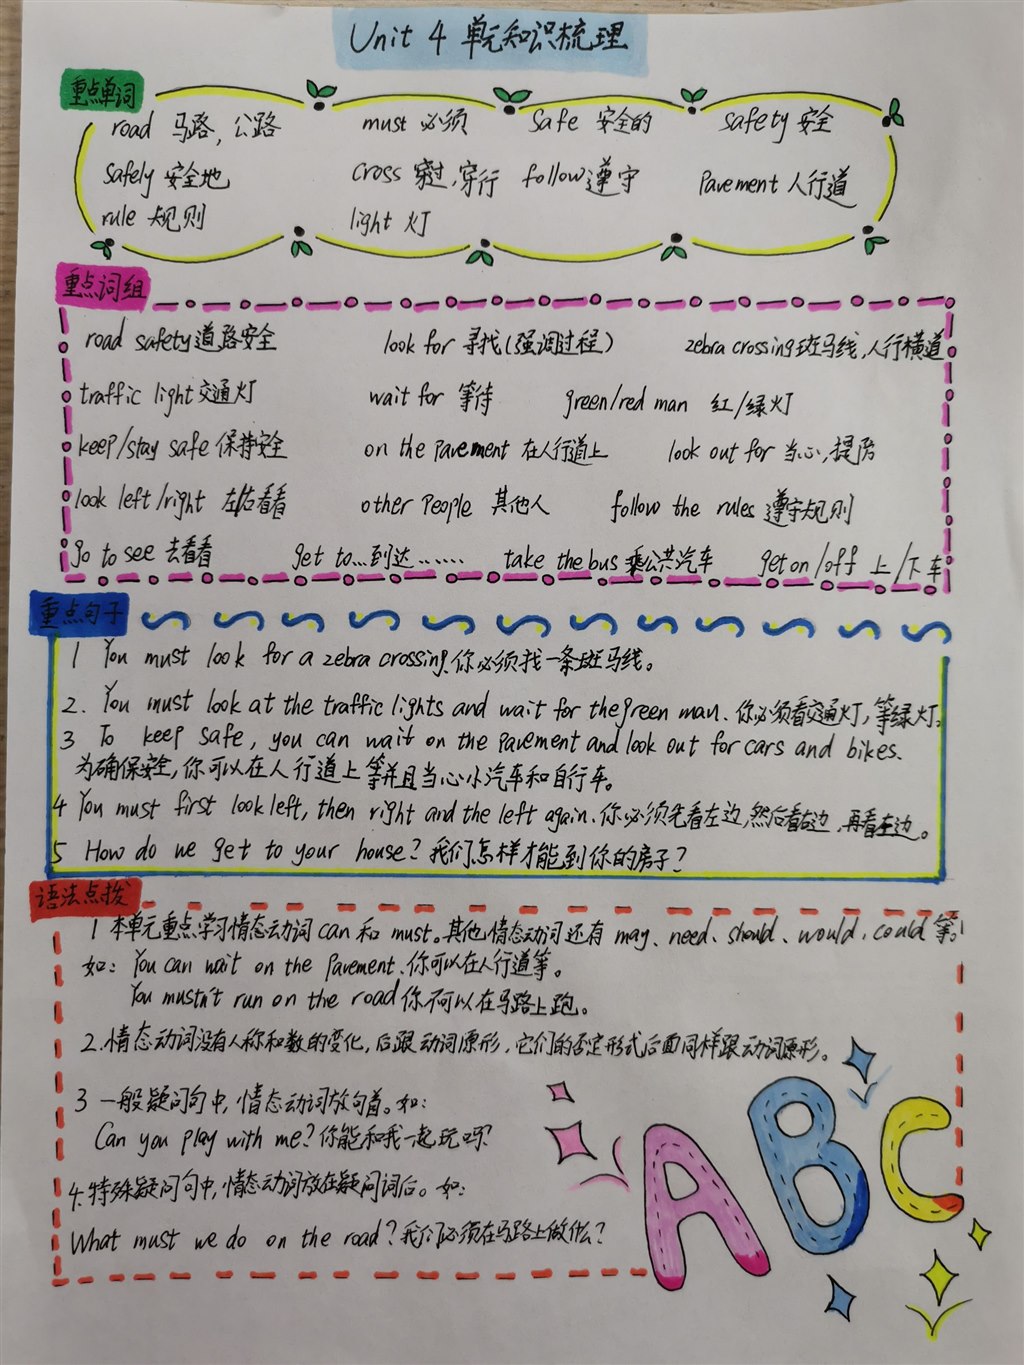 Unit 4 单元知识梳理
重点单词
road 马路，公路 must 必须 safe 安全的 safety 安全
safely 安全地 cross 穿过，穿行 follow 遵守 pavement 人行道
rule 规则 light 灯
重点词组
road safety 道路安全 look for 寻找(强调过程) zebra crossing 斑马线，人行横道
traffic light 交通灯 wait for 等待 green/red man 红/绿灯
keep/stay safe 保持安全 on the pavement 在人行道上 look out for 当心，提防
look left/right 左/右看看 other people 其他人 follow the rules 遵守规则
go to see 去看看 get to...到达…… take the bus 乘公共汽车 get on/off 上/下车
重点句子
1 You must look for a zebra crossing.你必须找一条斑马线。
2. You must look at the traffic lights and wait for the green man. 你必须看交通灯，等绿灯。
3 To keep safe, you can wait on the pavement and look out for cars and bikes.
为确保安全，你可以在人行道上等并且当心小汽车和自行车。
4 You must first look left, then right and the left again. 你必须先看左边，然后看右边，再看左边。
5 How do we get to your house? 我们怎样才能到你的房子？
语法点拨
1 本单元重点学习情态动词 can 和 must。其他情态动词还有 may、need、should、would，could 等。
如：You can wait on the pavement.你可以在人行道等。
You mustn't run on the road 你不可以在马路上跑。
2.情态动词没有人称和数的变化，后跟动词原形，它们的否定形式后面同样跟动词原形。
3 一般疑问句中，情态动词放句首。如：
Can you play with me? 你能和我一起玩吗？
4.特殊疑问句中，情态动词放在疑问词后。如：
What must we do on the road? 我们必须在马路上做什么？
ABC